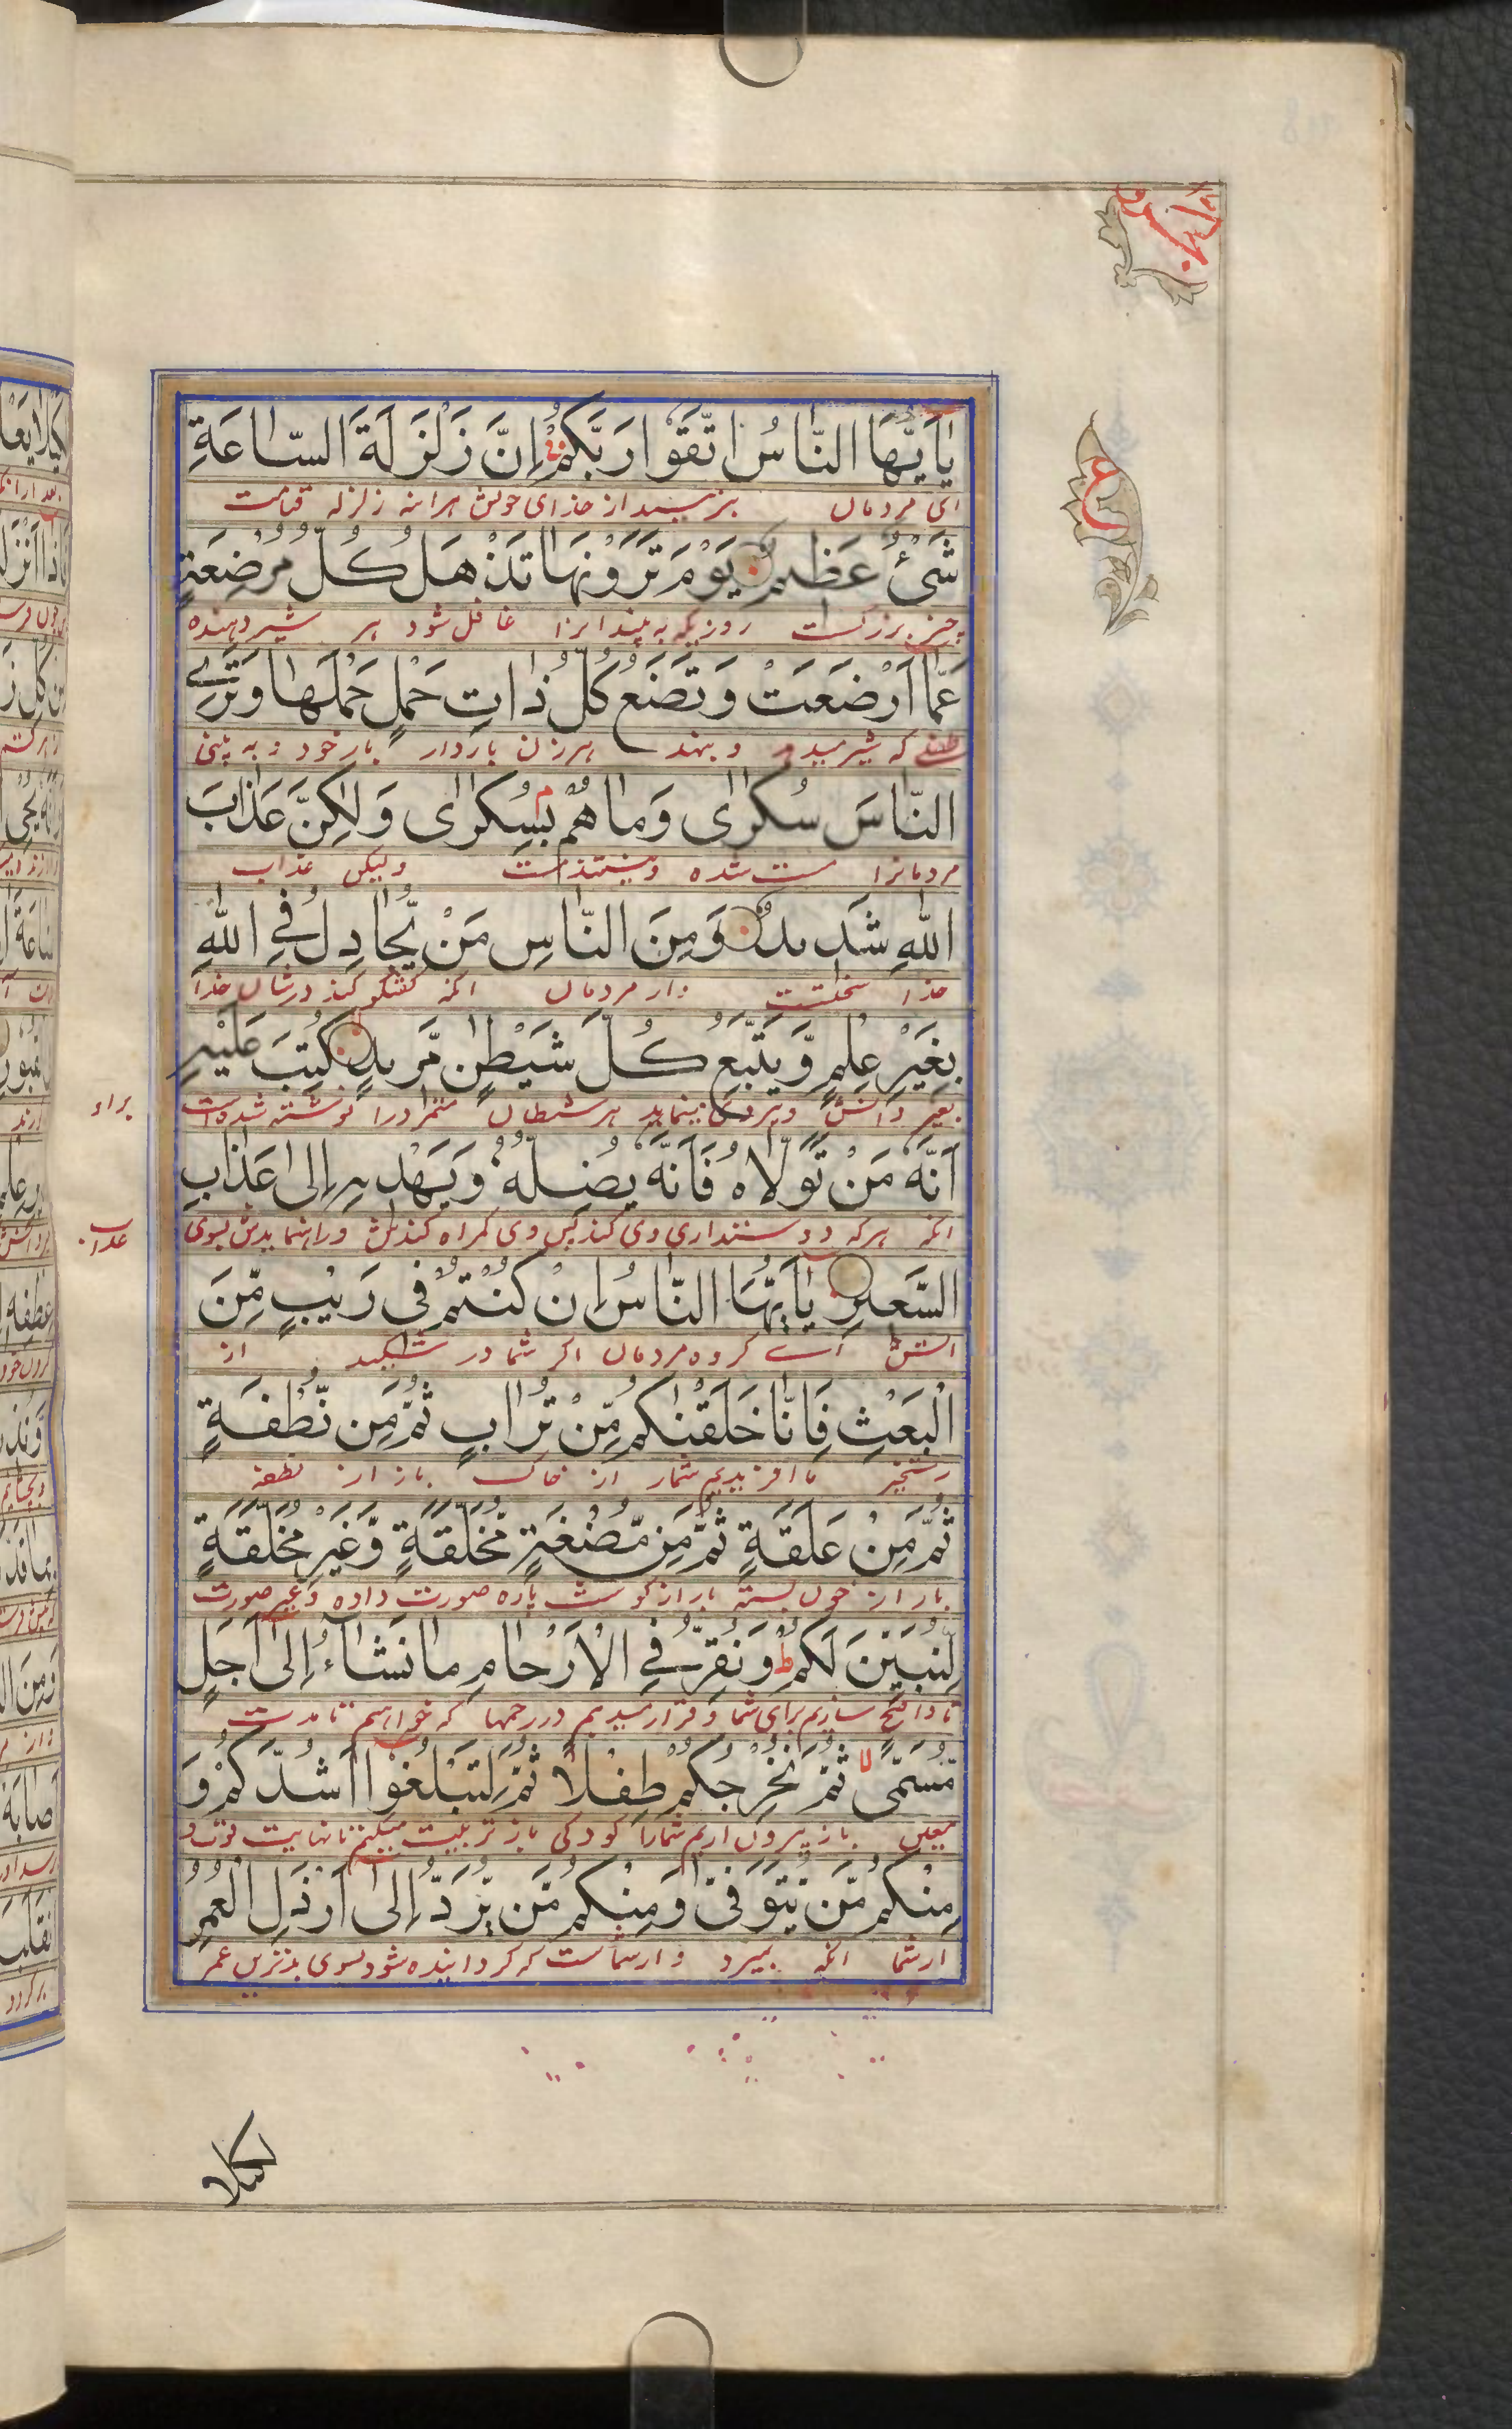 يٰاَيُّهَا النّٰاسُ اتَّقُوْا رَبَّكُمْ اِنَّ زَلْزَلَةَ السّٰاعَةِ
ای مردمان بترسید از خدای خویش هراینه زلزله قیامت
شَىْءٌ عَظيمٌ يَوْمَ تَرَوْنَهٰا تَذْهَلُ كُلُّ مُرْضِعَةٍ
چیزی بزرگست روزیکه به بینید انرا غافل شود هر شیر دهنده
عَمّٰا اَرْضَعَتْ وَتَضَعُ كُلُّ ذٰاتِ حَمْلٍ حَمْلَهٰا وَتَرَى
که شیر میدهد و بنهد هر زن باردار بار خود و به بینی
النّٰاسَ سُكٰارٰى وَمٰا هُمْ بِسُكٰارٰى وَلٰكِنَّ عَذٰابَ
مردمانرا مست شده و نیستند مست ولیکن عذاب
اللّٰهِ شَديدٌ وَمِنَ النّٰاسِ مَنْ يُّجٰادِلُ فِى اللّٰهِ
خدا سختست و از مردمان انکه گفتگو کند در شان خدا
بِغَيْرِ عِلْمٍ وَّيَتَّبِعُ كُلَّ شَيْطٰنٍ مَّريدٍ كُتِبَ عَلَيْهِ
بغیر دانش و پیروی مینماید هر شیطان متمرد را نوشته شده است
براو
اَنَّهُ مَنْ تَوَلّٰاهُ فَاَنَّهُ يُضِلُّهُ وَيَهْديهِ اِلٰى عَذٰابِ
انکه هر که دوستداری وی کند پس وی گمراه کندش و راه نمایدش بسوی
عذاب
السَّعيرِ يٰاَيُّهَا النّٰاسُ اِنْ كُنْتُمْ فى رَيْبٍ مِّنَ
اتش ای گروه مردمان اگر شما در شکید از
الْبَعْثِ فَاِنّٰا خَلَقْنٰكُمْ مِّنْ تُرٰابٍ ثُمَّ مِن نُّطْفَةٍ
رستخیز ما افریدیم شمارا از خاک باز از نطفه
ثُمَّ مِنْ عَلَقَةٍ ثُمَّ مِن مُّضْغَةٍ مُّخَلَّقَةٍ وَّغَيْرِ مُخَلَّقَةٍ
باز از خون بسته باز از گوشت پاره صورت داده و غیر صورت
لِّنُبَيِّنَ لَكُمْ وَنُقِرُّ فِى الْاَرْحٰامِ مٰا نَشٰاءُ اِلٰى اَجَلٍ
تا واضح سازیم برای شما و قرار میدهیم در رحمها که خواهیم تا مدت
مُّسَمًّى ثُمَّ نُخْرِجُكُمْ طِفْلاً ثُمَّ لِتَبْلُغُوْا اَشُدَّكُمْ وَ
معین باز بیرون اریم شمارا کودکی باز تربیت میکنیم تا نهایت قوت و
مِنْكُمْ مَّن يُّتَوَفّٰى وَمِنْكُمْ مَّن يُّرَدُّ اِلٰى اَرْذَلِ الْعُمُرِ
از شما انکه بمیرد و از شماست که گردانیده شود بسوی بدترین عمر
لكيلا
ع